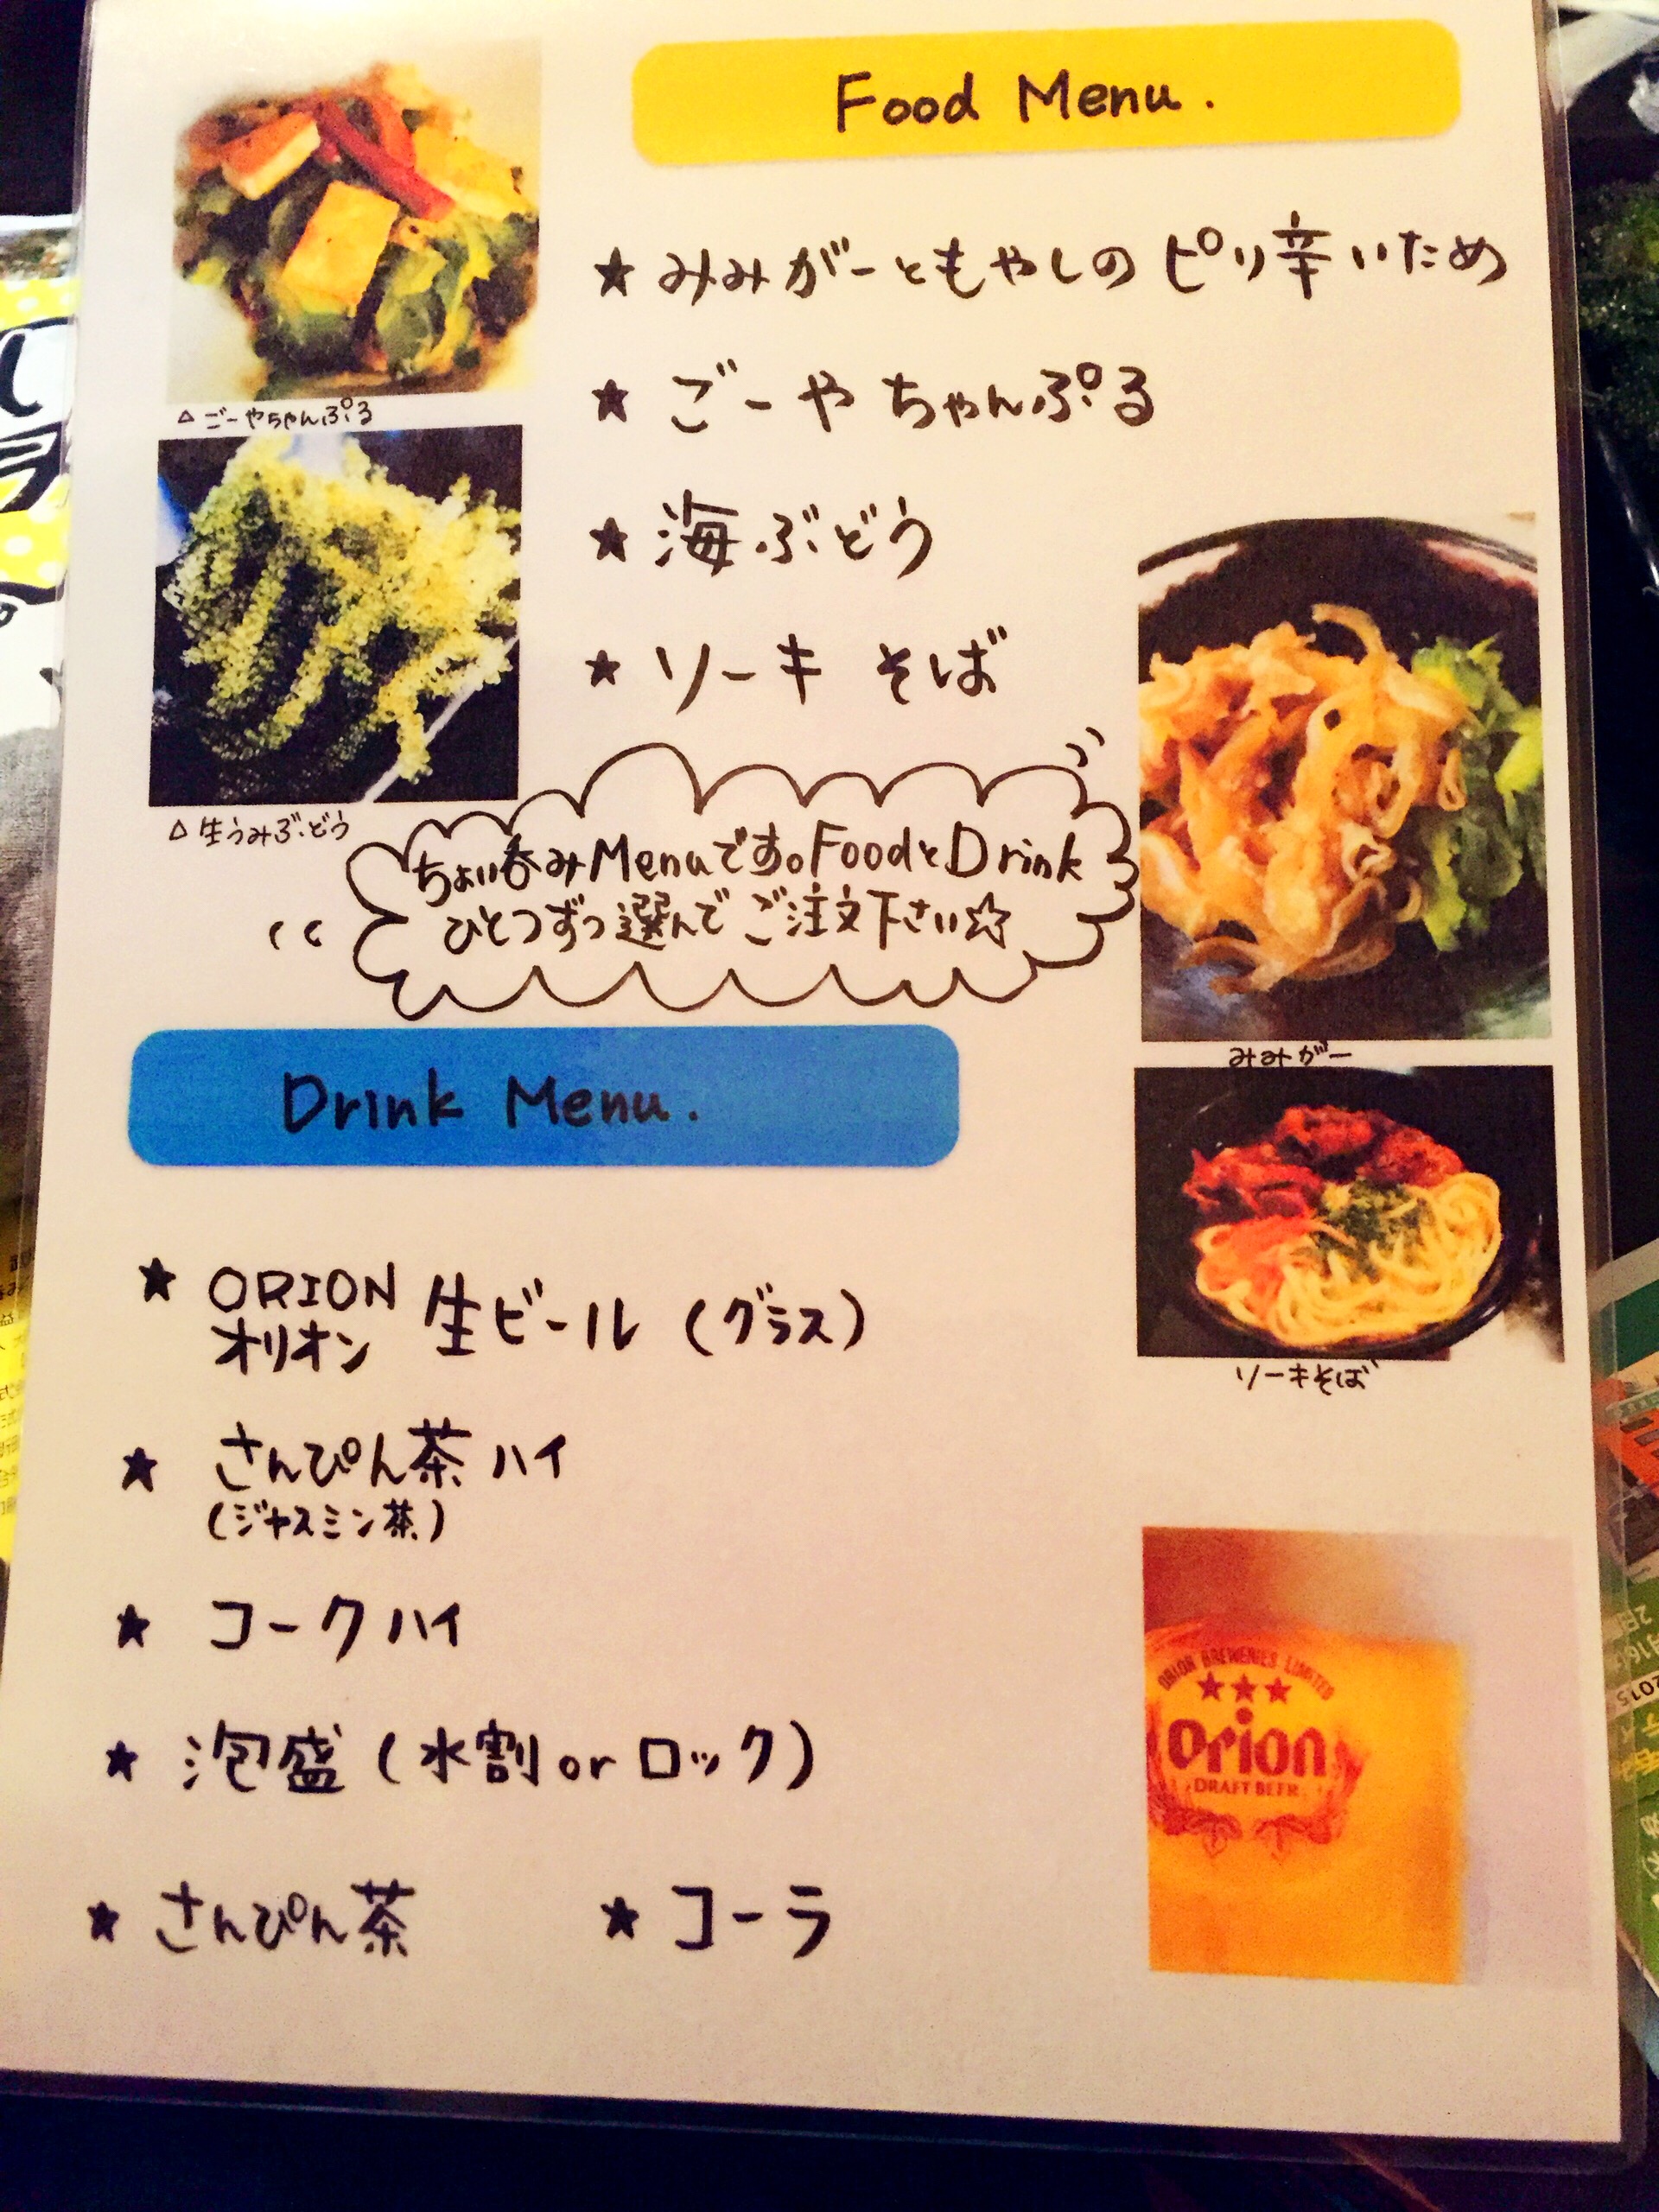 Food Menu.
★ みみがーともやしの ピリ辛いため
★ ごーや ちゃんぷる
△ごーやちゃんぷる
★ 海ぶどう
★ ソーキ そば
△生うみぶどう
ちょい呑みMenuです。FoodとDrink
ひとつずつ選んで ご注文下さい☆
みみがー
Drink Menu.
★ ORION 生ビール (グラス)
オリオン
ソーキそば
★ さんぴん茶 ハイ
(ジャスミン茶)
★ コークハイ
ORION BREWERIES LIMITED
★★★
Orion
DRAFT BEER
★ 泡盛 (水割 or ロック)
★ さんぴん茶 ★ コーラ